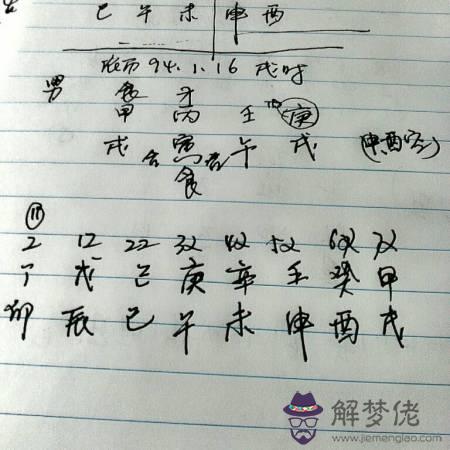 巳 午 未 申 酉
农历 94.1.16 戌时
男 食 才
甲 丙 壬 庚
戌 合 寅 合 午 戌 (申酉空)
食
⑪
2 12 22 32 42 52 62 72
丁 戊 己 庚 辛 壬 癸 甲
卯 辰 巳 午 未 申 酉 戌
解梦佬
www.jiemenglao.com